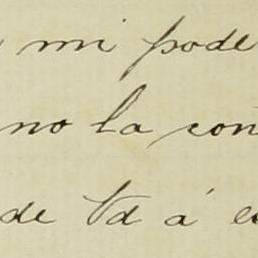 mi pode
no la con
de Vd á e